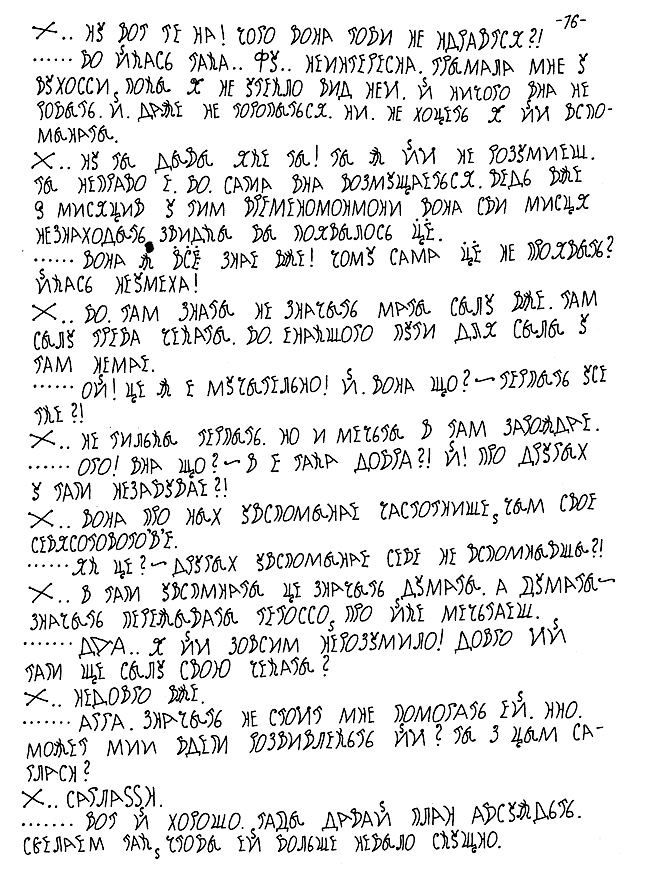 -76-
Х.. НУ ВОТ ТЕ НА! ЧОГО ВОНА ТОБИ НЕ НДРАВТСЯ?!
...... ВО ЙКАСЬ ТАКА.. ФУ.. НЕИНТЕРЕСНА. ТРЫМАЛА МНЕ У
ВУХОССИ, ПОКА Я НЕ УТЕКЛО ВИД НЕИ. Й НИЧОГО ВНА НЕ
РОБЫТЬ. Й. ДАЖЕ НЕ ТОРОПЫТЬСЯ. НИ. НЕ ХОЦЕТЬ Я ЙИ ВСПО-
МЫНАТЫ.
Х.. НУ ТЫ ДАВЫ ЯКЕ ТЫ! ТЫ Ж ЙИ НЕ РОЗУМИЕШ.
ТЫ НЕПРАВО Е. БО. САМА ВНА ВОЗМУЩАЕТЬСЯ. ВЕДЬ ВЖЕ
9 МИСЯЦИВ У ТИМ ВРЕМЕНОМОНМОНИ ВОНА СВИ МИСЦЯ
НЕЗНАХОДЫТЬ, ЗВИДКЫ БЫ ПОЯВЫЛОСЬ ЦЕ.
...... ВОНА Ж ВСЁ ЗНАЕ ВЖЕ! ЧОМУ САМА ЦЕ НЕ ПРОЯВЫТЬ?
ЙКАСЬ НЕУМЕХА!
Х.. БО. ТАМ ЗНАТЫ НЕ ЗНАЧЫТЬ МАТЫ СЫЛУ ВЖЕ. ТАМ
СЫЛУ ТРЕБА ЧЕКАТЫ. БО. ЕНАКШОГО ПУТИ ДЛЯ СЫЛЫ У
ТАМ НЕМАЕ.
...... ОЙ! ЦЕ Ж Е МУЧЫТЕЛЬНО! Й. ВОНА ЩО? — ТЕРПЫТЬ УСЕ
ТКЕ?!
Х.. НЕ ТИЛЬКЫ ТЕРПЫТЬ. НО И МЕЧЬТЫ В ТАМ ЗАРОЖДАЕ.
...... ОГО! ВНА ЩО? — В Е ТАКА ДОБРА?! Й! ПРО ДРУГЫХ
У ТАМ НЕЗАБУВАЕ?!
Х.. ВОНА ПРО НЫХ УВСПОМЫНАЕ ЧАСТОТНИШЕ, ЧЫМ СВОЕ
СЕБЯСОБОВОГОВ'Е.
...... ЯК ЦЕ? — ДРУГЫХ УВСПОМЫНАЕ СЕБЕ НЕ ВСПОМНЫВШЫ?!
Х.. В ТАМ УВСПМНАТЫ ЦЕ ЗНАЧЫТЬ ДУМАТЫ. А ДУМАТЫ —
ЗНАЧЫТЬ ПЕРЕЖЫВАТЫ ТЕГОССО, ПРО ЙКЕ МЕЧЬТАЕШ.
....... ДАА.. Я ЙИ ЗОВСИМ НЕРОЗУМИЛО! ДОВГО ИЙ
ТАМ ЩЕ СЫЛУ СВОЮ ЧЕКАТЫ?
Х.. НЕДОВГО ВЖЕ.
....... АГГА. ЗНАЧЫТЬ НЕ СТОИТ МНЕ ПОМОГАТЬ ЕЙ. ННО.
МОЖЕТ МИИ БДЕМ РОЗВИВЛЕКЬТЬ ЙИ? ТЫ З ЦЫМ СА-
ГЛАСН?
Х.. САГЛАSSН.
....... ВОТ Й ХОРОШО. ТАДЫ ДАВАЙ ПЛАН АБСУЖДЬТЬ.
СБЕЛАЕМ ТАК, ЧТОБЫ ЕЙ БОЛЬШЕ НЕБЫЛО СКУЩНО.